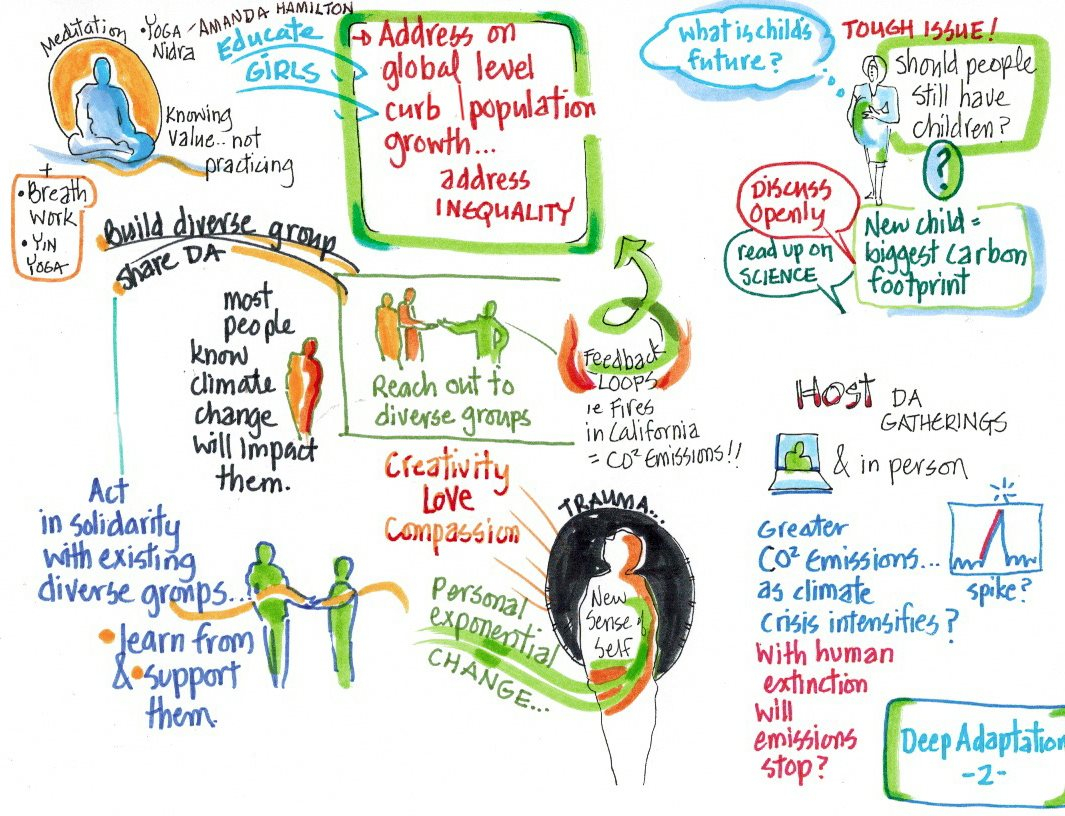 Meditation
• YOGA - AMANDA HAMILTON
Nidra
Knowing
value.. not
practicing
+
• Breath
work
• Yin
YOGA
Educate
GIRLS
→ Address on
global level
curb population
growth...
address
INEQUALITY
what is child's
future?
TOUGH ISSUE!
should people
still have
children?
?
DISCUSS
Openly
read up on
SCIENCE
New child =
biggest carbon
footprint
Build diverse group
share DA
most
people
know
climate
change
will impact
them.
Reach out to
diverse groups
Feedback
LOOPS
ie Fires
in California
= CO² Emissions!!
HOST DA
GATHERINGS
& in person
Act
in solidarity
with existing
diverse groups...
• learn from
& • support
them.
Creativity
Love
Compassion
TRAUMA...
Personal
exponential
CHANGE...
New
Sense of
Self
Greater
CO² Emissions...
as climate
crisis intensifies?
spike?
With human
extinction
will
emissions
stop?
Deep Adaptation
- 2 -